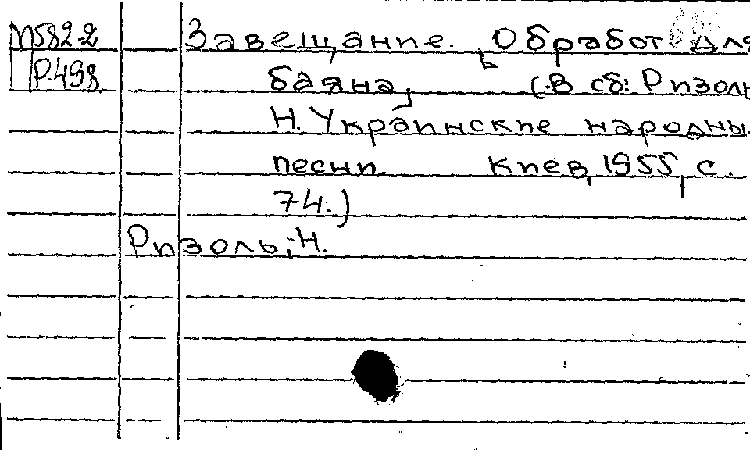 М582-2 Завещание. Обработ для
Р.498 баяна, (В сб: Ризоль
Н. Украинские народны
песни Киев, 1955, с.
74.)
Ризоль, Н.